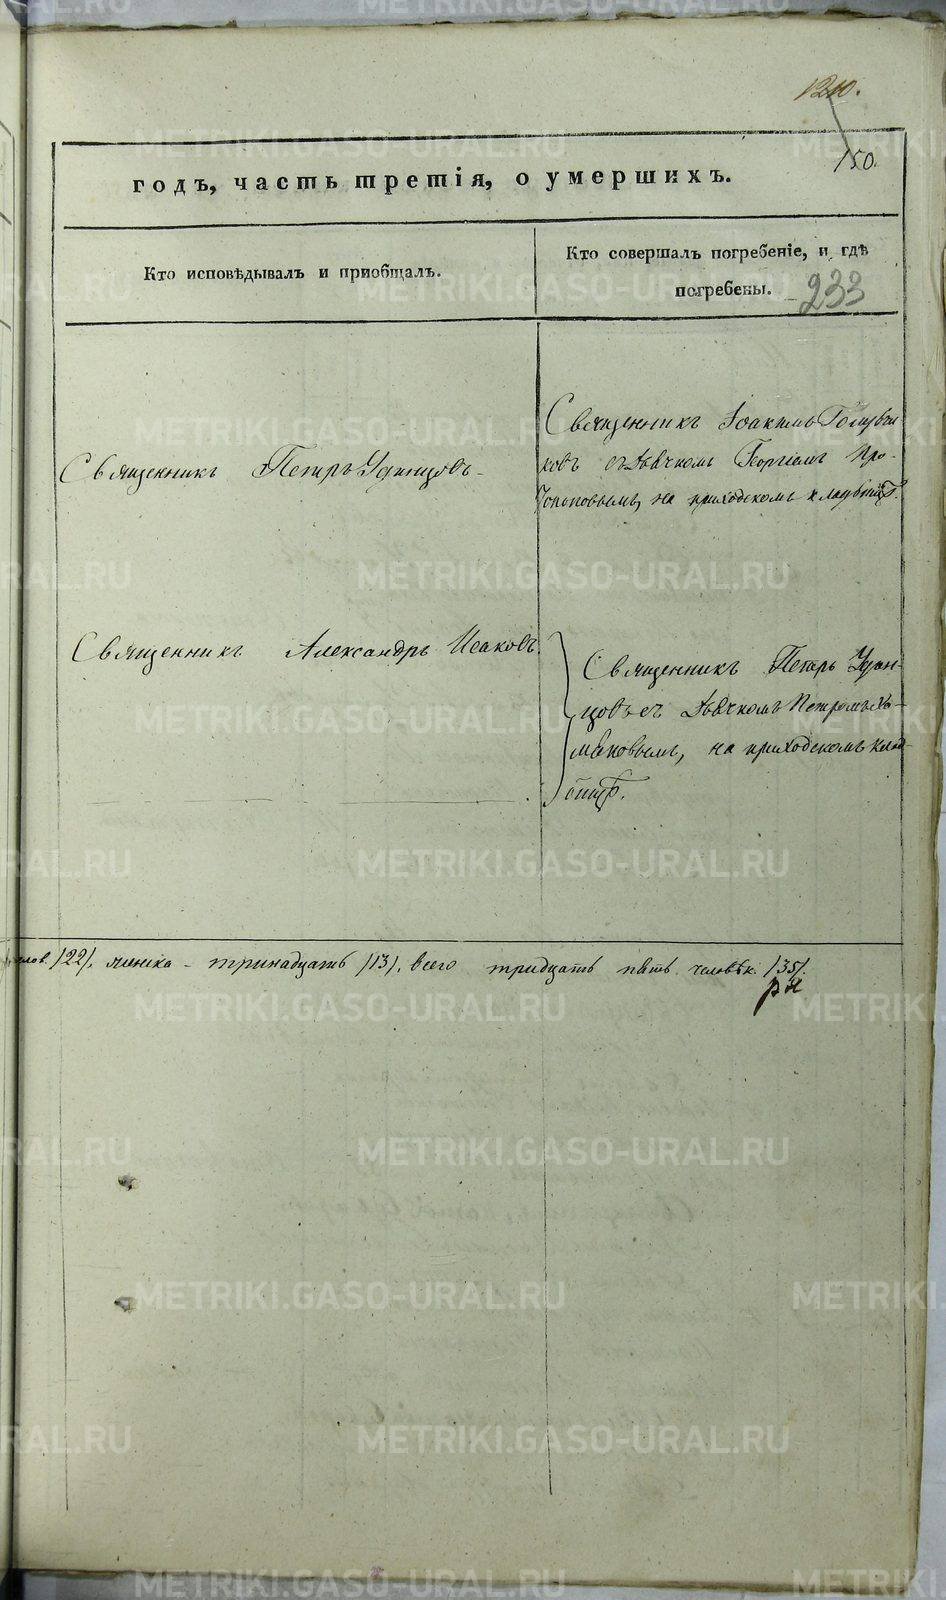 150.
годъ, часть третія, о умершихъ.
Кто исповѣдывалъ и приобщалъ.
Кто совершалъ погребеніе, и гдѣ
погребены.
233
Священникъ Петръ Удинцовъ
Священникъ Іоакимъ
ковъ съ Дьячкомъ Георгіемъ Про-
топоповымъ, на приходскомъ кладбищѣ.
Священникъ Александръ Исаковъ.
Священникъ Петръ Удин-
цовъ съ Дьячкомъ Петромъ
маковымъ, на приходскомъ клад-
бищѣ.
/22/, женска - тринадцать /13/, всего тридцать пять человѣк. /35/.
METRIKI.GASO-URAL.RU